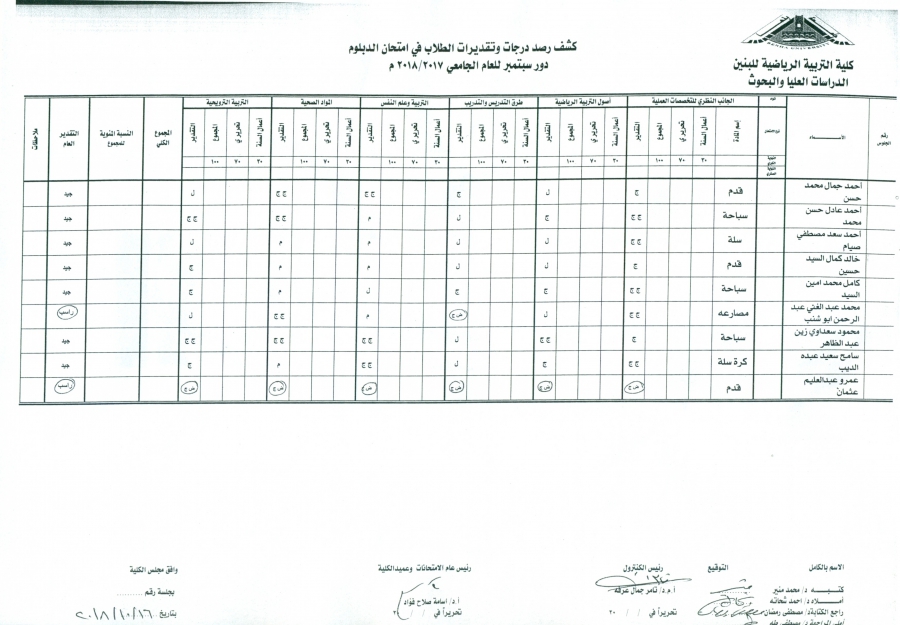 كلية التربية الرياضية للبنين
الدراسات العليا والبحوث
كشف رصد درجات وتقديرات الطلاب في امتحان الدبلوم
دور سبتمبر للعام الجامعي ٢٠١٨/٢٠١٧ م
رقم الجلوس الأســـــــماء المواد الجانب النظري للتخصصات العملية أصول التربية الرياضية طرق التدريس والتدريب التربية وعلم النفس المواد الصحية التربية الترويحية المجموع الكلي النسبة المئوية للمجموع التقدير العام ملاحظات
إسم المادة أعمال السنة تحريري المجموع التقدير أعمال السنة تحريري المجموع التقدير أعمال السنة تحريري المجموع التقدير أعمال السنة تحريري المجموع التقدير أعمال السنة تحريري المجموع التقدير أعمال السنة تحريري المجموع التقدير
٣٠ ٧٠ ١٠٠ ٣٠ ٧٠ ١٠٠ ٣٠ ٧٠ ١٠٠ ٣٠ ٧٠ ١٠٠ ٣٠ ٧٠ ١٠٠ ٣٠ ٧٠ ١٠٠
أحمد جمال محمد حسن قدم ج ل ج ج ج ج ج ل جيد
أحمد عادل حسن محمد سباحة ج ج ج ل م ج ج ج ج جيد
أحمد سعد مصطفي صيام سلة ج ج ل ل م م ل جيد
خالد كمال السيد حسين قدم ج ل ل م م ج جيد
كامل محمد امين السيد سباحة ج ج ج ج ل م ج جيد
محمد عبد الغني عبد الرحمن ابو شنب مصارعه ج ج ل ض ج م ج ج ل راسب
محمود سعداوي زين عبد الظاهر سباحة ج ج ج ل ج ج ج ج ج ج جيد
سامح سعيد عبده الديب كرة سلة ج ج ج ل ج ج م ج جيد
عمرو عبدالعليم عثمان قدم ض ج ض ج ض ج ض ج ض ج ض ج راسب
الاسم بالكامل التوقيع رئيس الكنترول رئيس عام الامتحانات وعميدالكلية وافق مجلس الكلية
كتبــــه د/ محمد منير أ.م.د/ تامر جمال عرفه أ.د/ أسامة صلاح فؤاد بجلسة رقم ........
أمـــلاه د/ احمد شحاته
راجع الكتابة/ مصطفى رمضان تحريراً في / / ٢٠ تحريراً في / / ٢٠ بتاريخ ٢٠١٨/١٠/١٦